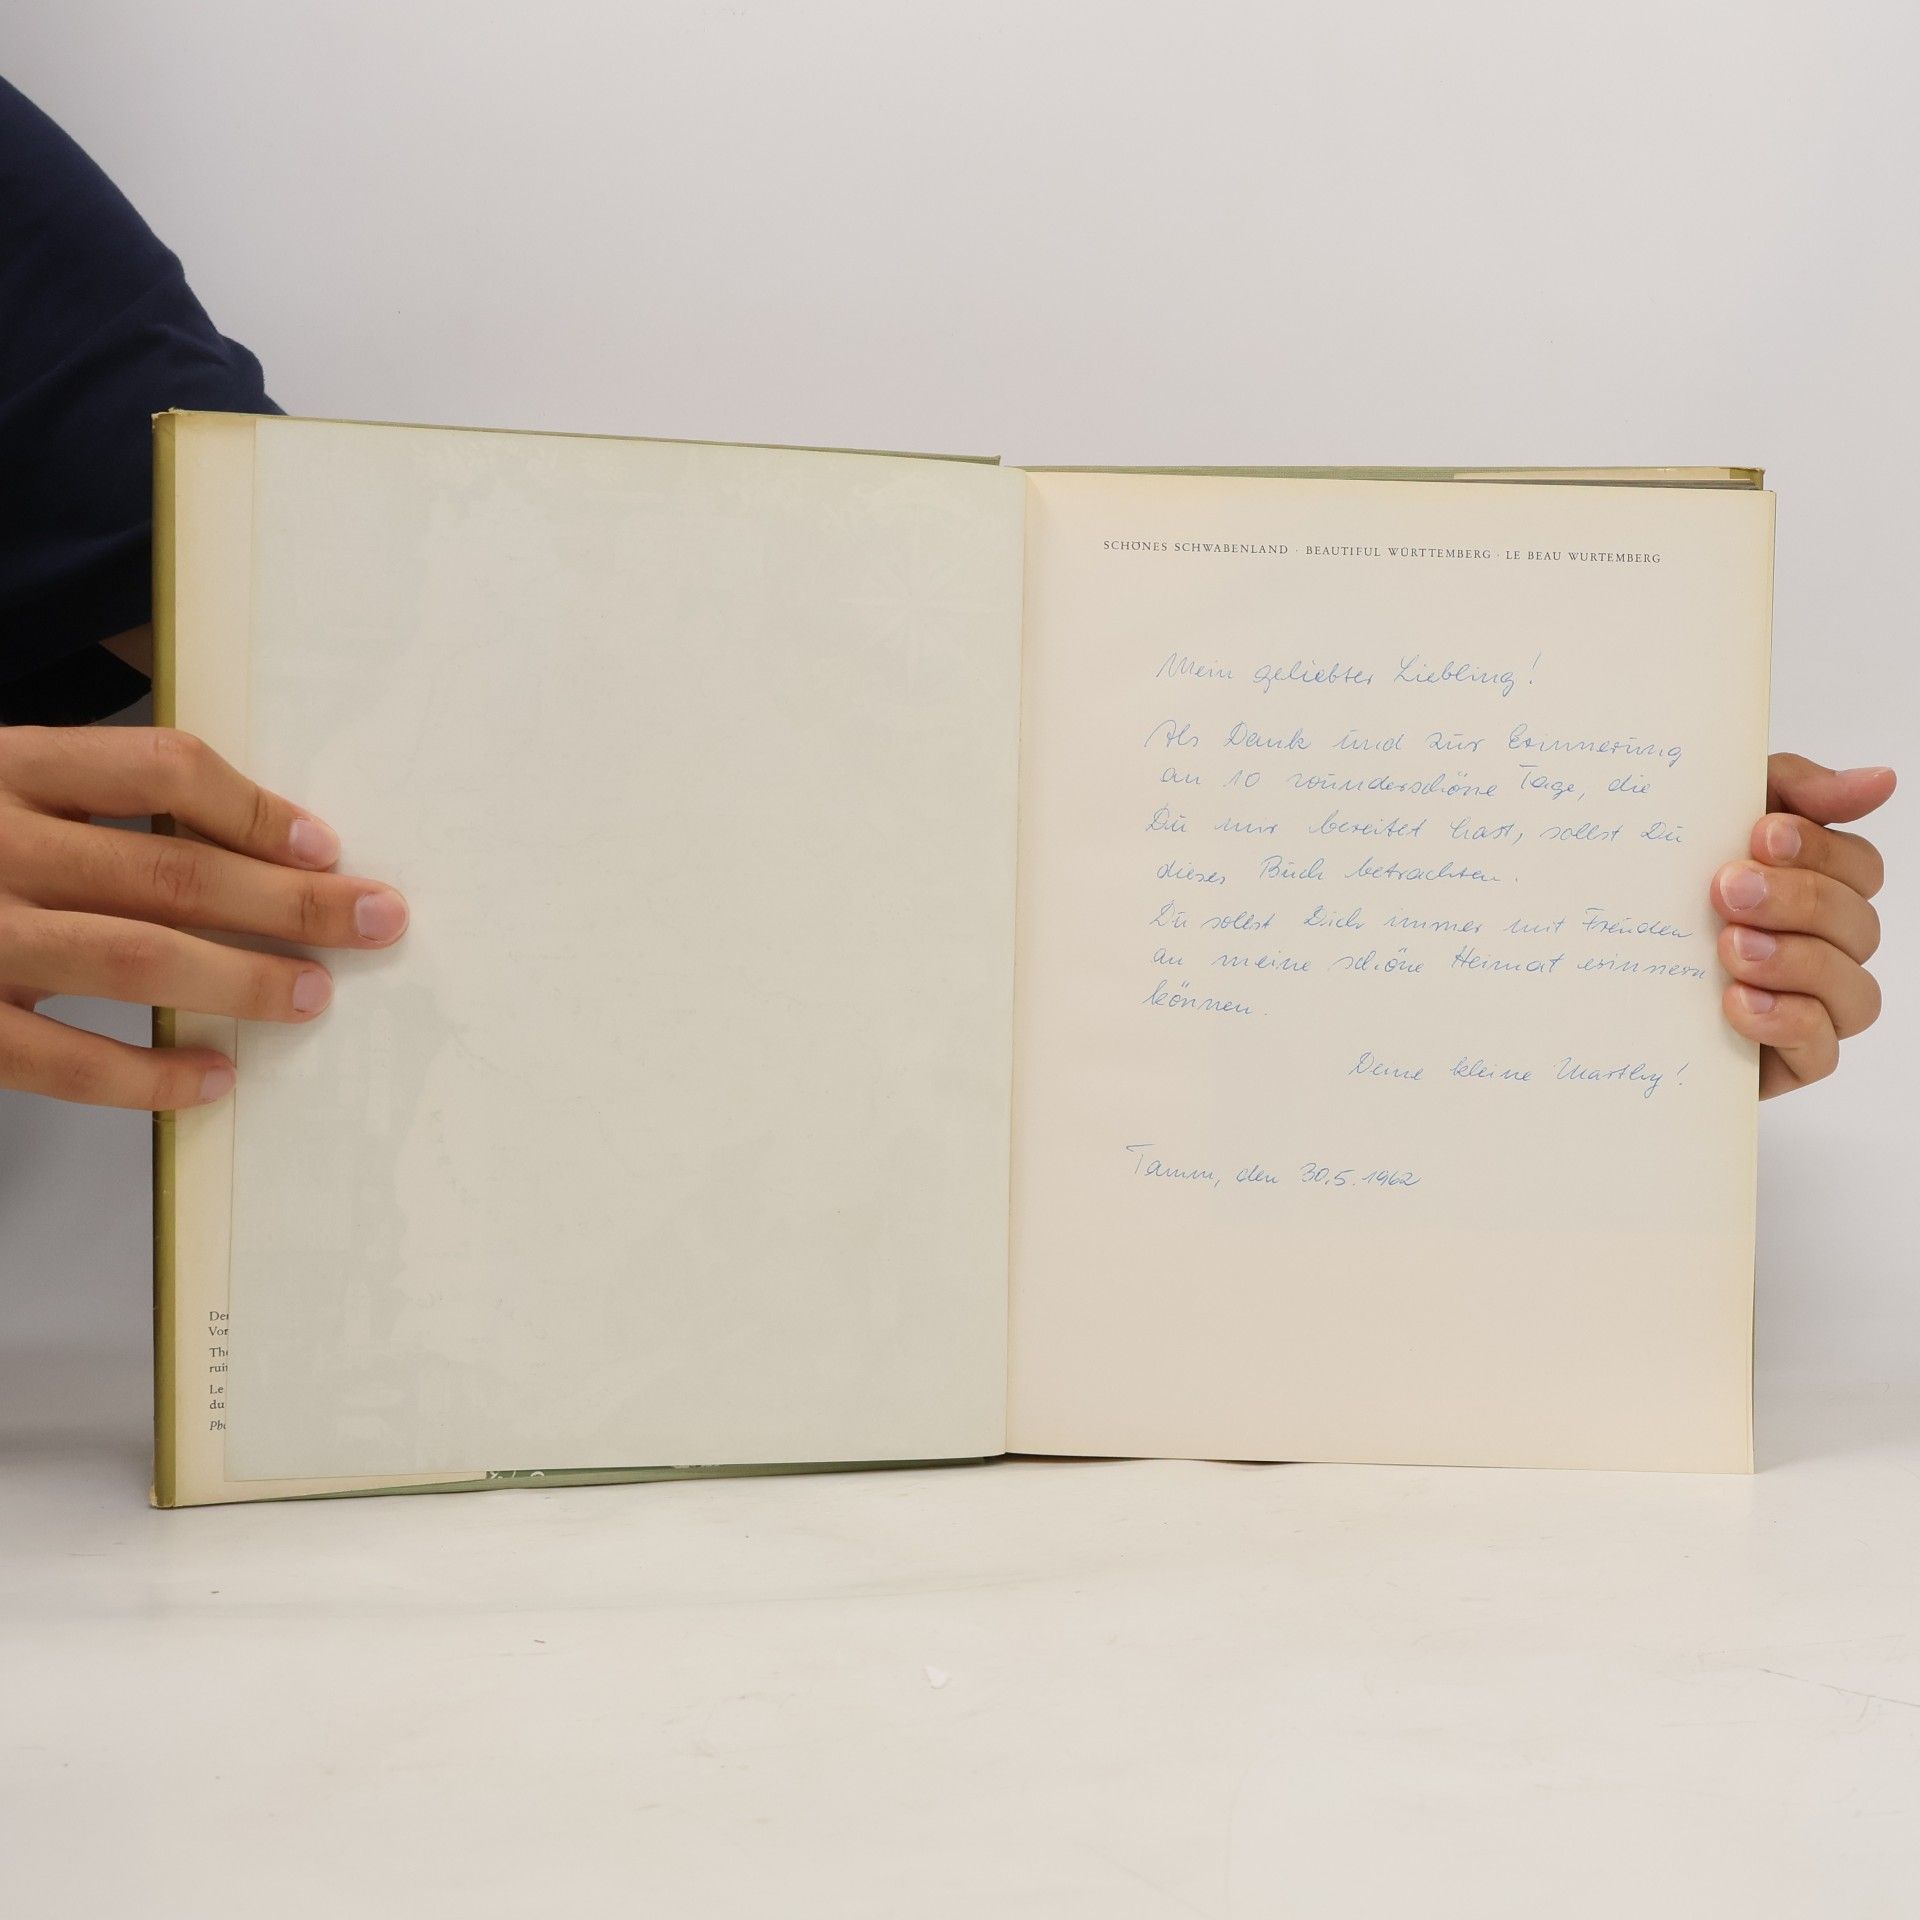 SCHÖNES SCHWABENLAND · BEAUTIFUL WÜRTTEMBERG · LE BEAU WURTEMBERG
Mein geliebter Liebling!
Als Dank und zur Erinnerung
an 10 wunderschöne Tage, die
Du mir bereitet hast, sollst Du
dieses Buch betrachten.
Du sollst Dich immer mit Freuden
an meine schöne Heimat erinnern
können.
Deine kleine Marthy!
Tamm, den 30.5.1962
De
Vor
The
rui
Le
du
Pho